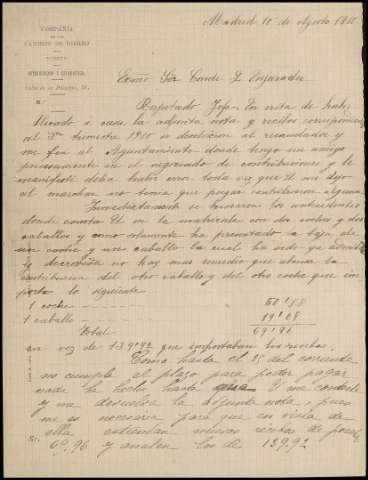 Madrid 10 de Agosto 1910
COMPAÑÍA
DE LOS
CAMINOS DE HIERRO
DEL NORTE
Excmo Sor Conde
N.º
Respetado Jefe: En vista de haber
llevado á casa la adjunta nota y recibo correspondiente
al 3er trimestre 1910 se devolvieron al recaudador y
me fui al Ayuntamiento donde tengo un amigo
precisamente en el negociado de contribuciones y le
manifesté debía haber error toda vez que V. me dijo
al marchar no tenía que pagar contribucion alguna
Inmediatamente se buscaron los antecedentes
donde consta V. en la matrícula con dos coches y dos
caballos y como solamente ha presentado la baja de
un coche y un caballo la cual ha sido ya
y no hay mas remedio que abonar la
contribucion del otro caballo y del otro coche que im-
porta lo siguiente
1 coche 50'88
1 caballo 19'08
Total 69'96
en vez de 139'92 que importaban los recibos.
Como hasta el 25 del corriente
no cumple el plazo para poder pagar
nada he hecho hasta que V. me conteste
y me devuelva la adjunta nota, pues
me es necesaria para que en vista de
ella extiendan nuevos recibos de pesetas
69'96 y anulen los de 139'92